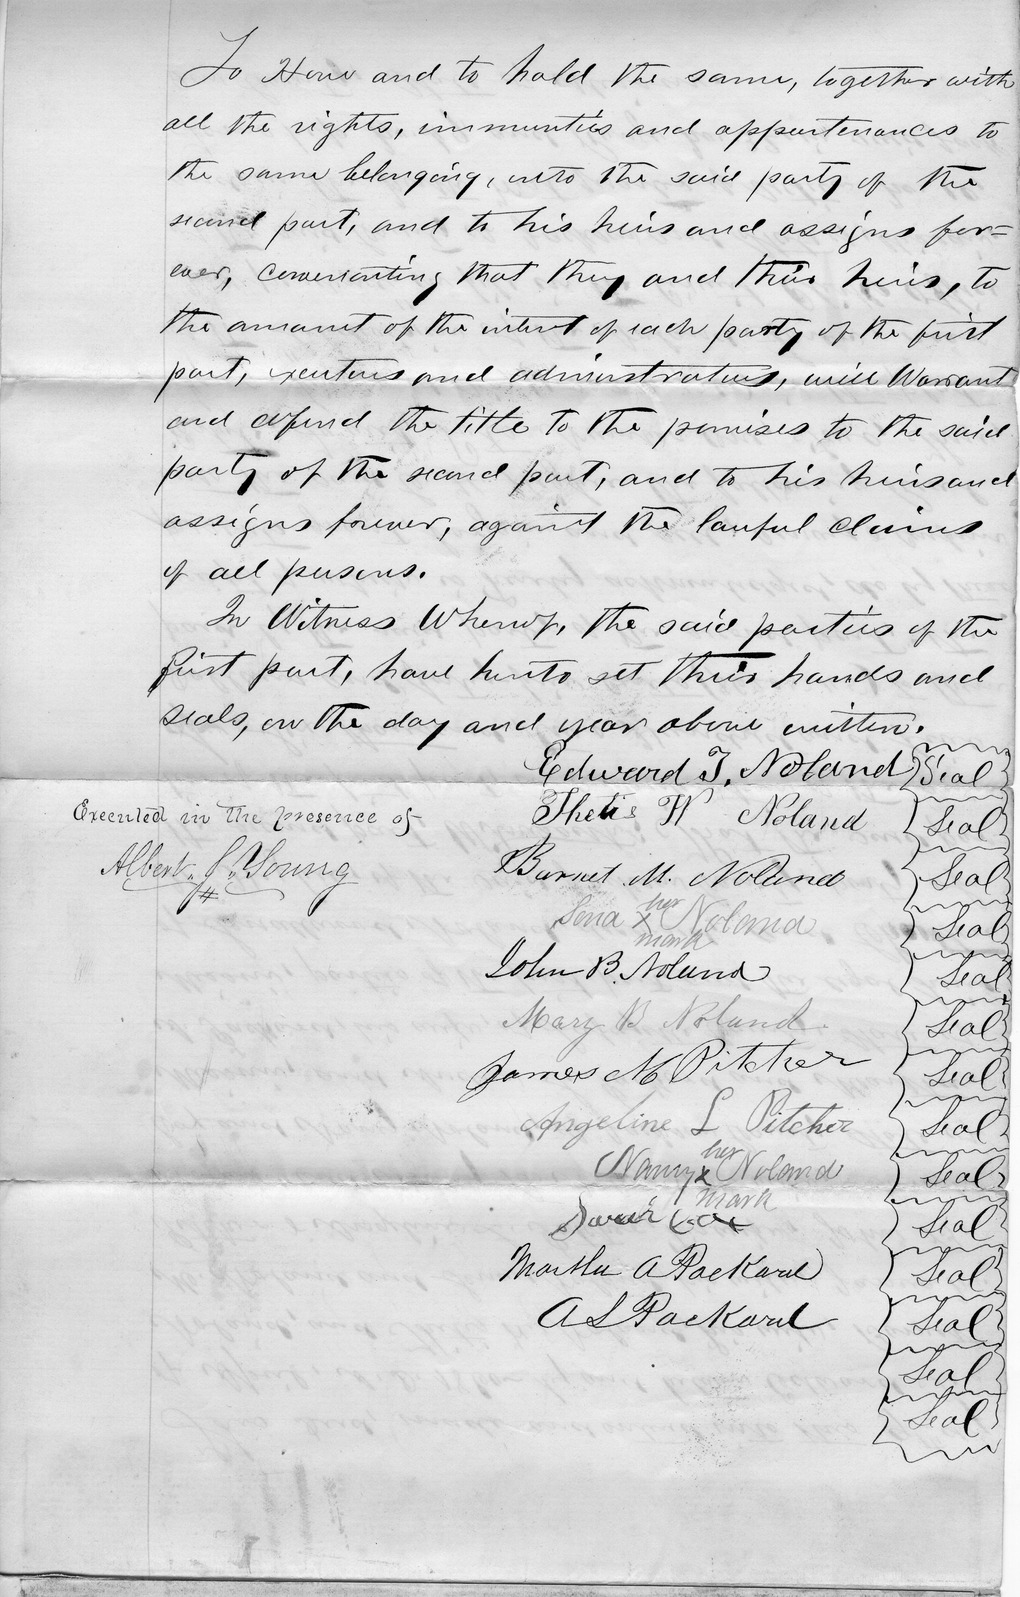 To Have and to hold the same, together with
all the rights, immunties and appurtenances to
the same belonging, unto the said party of the
second part, and to his heirs and assigns for=
ever, covenanting that they and their heirs, to
the amount of the interest of each party of the first
part, executors and administrators, will Warrant
and defend the title to the premises to the said
party of the second part, and to his heirs and
assigns forever, against the lawful claims
of all persons.
In Witness Whereof, the said parties of the
first part, have hereto set their hands and
seals, on the day and year above written.
Edward T. Noland Seal
Executed in the presence of
Thetis W Noland Seal
Albert J. Young
Barnet M. Noland Seal
her
Lena x Noland Seal
mark
John B. Noland Seal
Mary B Noland Seal
James M Pitcher Seal
Angeline L Pitcher Seal
her
Nancy x Noland Seal
mark
Cox Seal
Martha A Packard Seal
A L Packard Seal
Seal
Seal